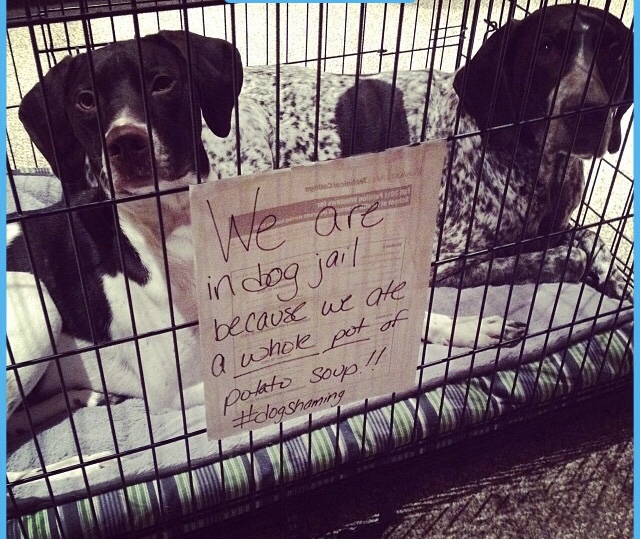 We are
in dog jail
because we ate
a whole pot of
potato soup!!
#dogshaming